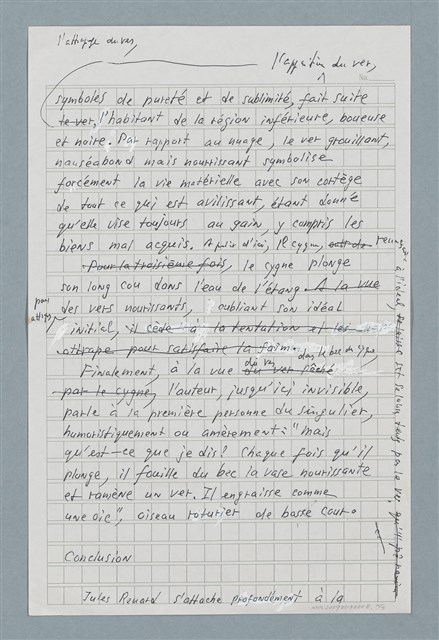 l'attrape du ver,
l'apparition du ver,
No.
symboles de pureté et de sublimité, fait suite
le ver, l'habitant de la région inférieure, boueuse
et noire. Par rapport au nuage, le ver grouillant,
nauséabond mais nourrissant symbolise
forcément la vie matérielle avec son cortège
de tout ce qui est avilissant, étant donné
qu'elle vise toujours au gain, y compris les
biens mal acquis. A partir d'ici, le cygne,
Pour la troisième fois, le cygne plonge
son long cou dans l'eau de l'étang. A la vue
des vers nourissants, oubliant son idéal
pour
attraper
initial, il cède à la tentation et les
attrape pour satisfaire la faim.
Finalement, à la vue du ver pêché
du ver
dans le bec du cygne
par le cygne, l'auteur, jusqu'ici invisible,
parle à la première personne du singulier,
humoristiquement ou amèrement : "Mais
qu'est-ce que je dis? Chaque fois qu'il
plonge, il fouille du bec la vase nourissante
et ramène un ver. Il engraisse comme
une oie", oiseau roturier de basse cour.
Conclusion
Jules Renard s'attache profondément à la